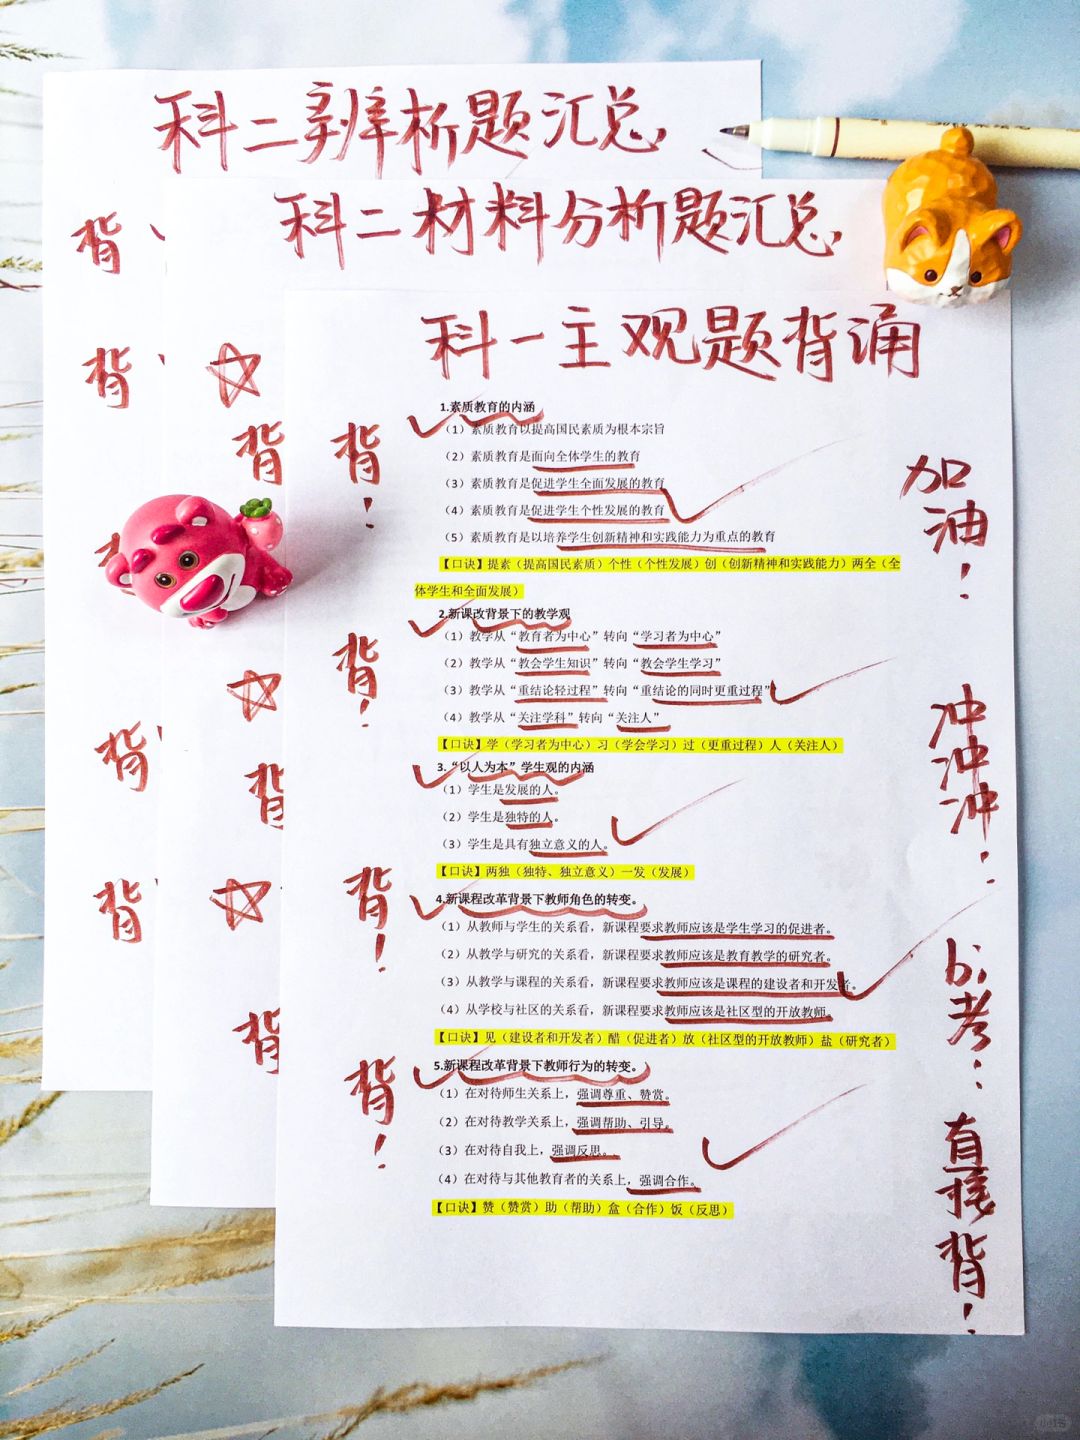 科二辨析题汇总
背
背
背
背
科二材料分析题汇总
背
背
背
科一主观题背诵
1.素质教育的内涵
（1）素质教育以提高国民素质为根本宗旨
（2）素质教育是面向全体学生的教育
（3）素质教育是促进学生全面发展的教育
（4）素质教育是促进学生个性发展的教育
（5）素质教育是以培养学生创新精神和实践能力为重点的教育
【口诀】提素（提高国民素质）个性（个性发展）创（创新精神和实践能力）两全（全
体学生和全面发展）
2.新课改背景下的教学观
（1）教学从“教育者为中心”转向“学习者为中心”
（2）教学从“教会学生知识”转向“教会学生学习”
（3）教学从“重结论轻过程”转向“重结论的同时更重过程”
（4）教学从“关注学科”转向“关注人”
【口诀】学（学习者为中心）习（学会学习）过（更重过程）人（关注人）
3.“以人为本”学生观的内涵
（1）学生是发展的人。
（2）学生是独特的人。
（3）学生是具有独立意义的人。
【口诀】两独（独特、独立意义）一发（发展）
4.新课程改革背景下教师角色的转变。
（1）从教师与学生的关系看，新课程要求教师应该是学生学习的促进者。
（2）从教学与研究的关系看，新课程要求教师应该是教育教学的研究者。
（3）从教学与课程的关系看，新课程要求教师应该是课程的建设者和开发者。
（4）从学校与社区的关系看，新课程要求教师应该是社区型的开放教师。
【口诀】见（建设者和开发者）醋（促进者）放（社区型的开放教师）盐（研究者）
5.新课程改革背景下教师行为的转变。
（1）在对待师生关系上，强调尊重、赞赏。
（2）在对待教学关系上，强调帮助、引导。
（3）在对待自我上，强调反思。
（4）在对待与其他教育者的关系上，强调合作。
【口诀】赞（赞赏）助（帮助）盒（合作）饭（反思）
背！
背！
背！
背！
加油！
冲冲冲！
必考！
直接背！